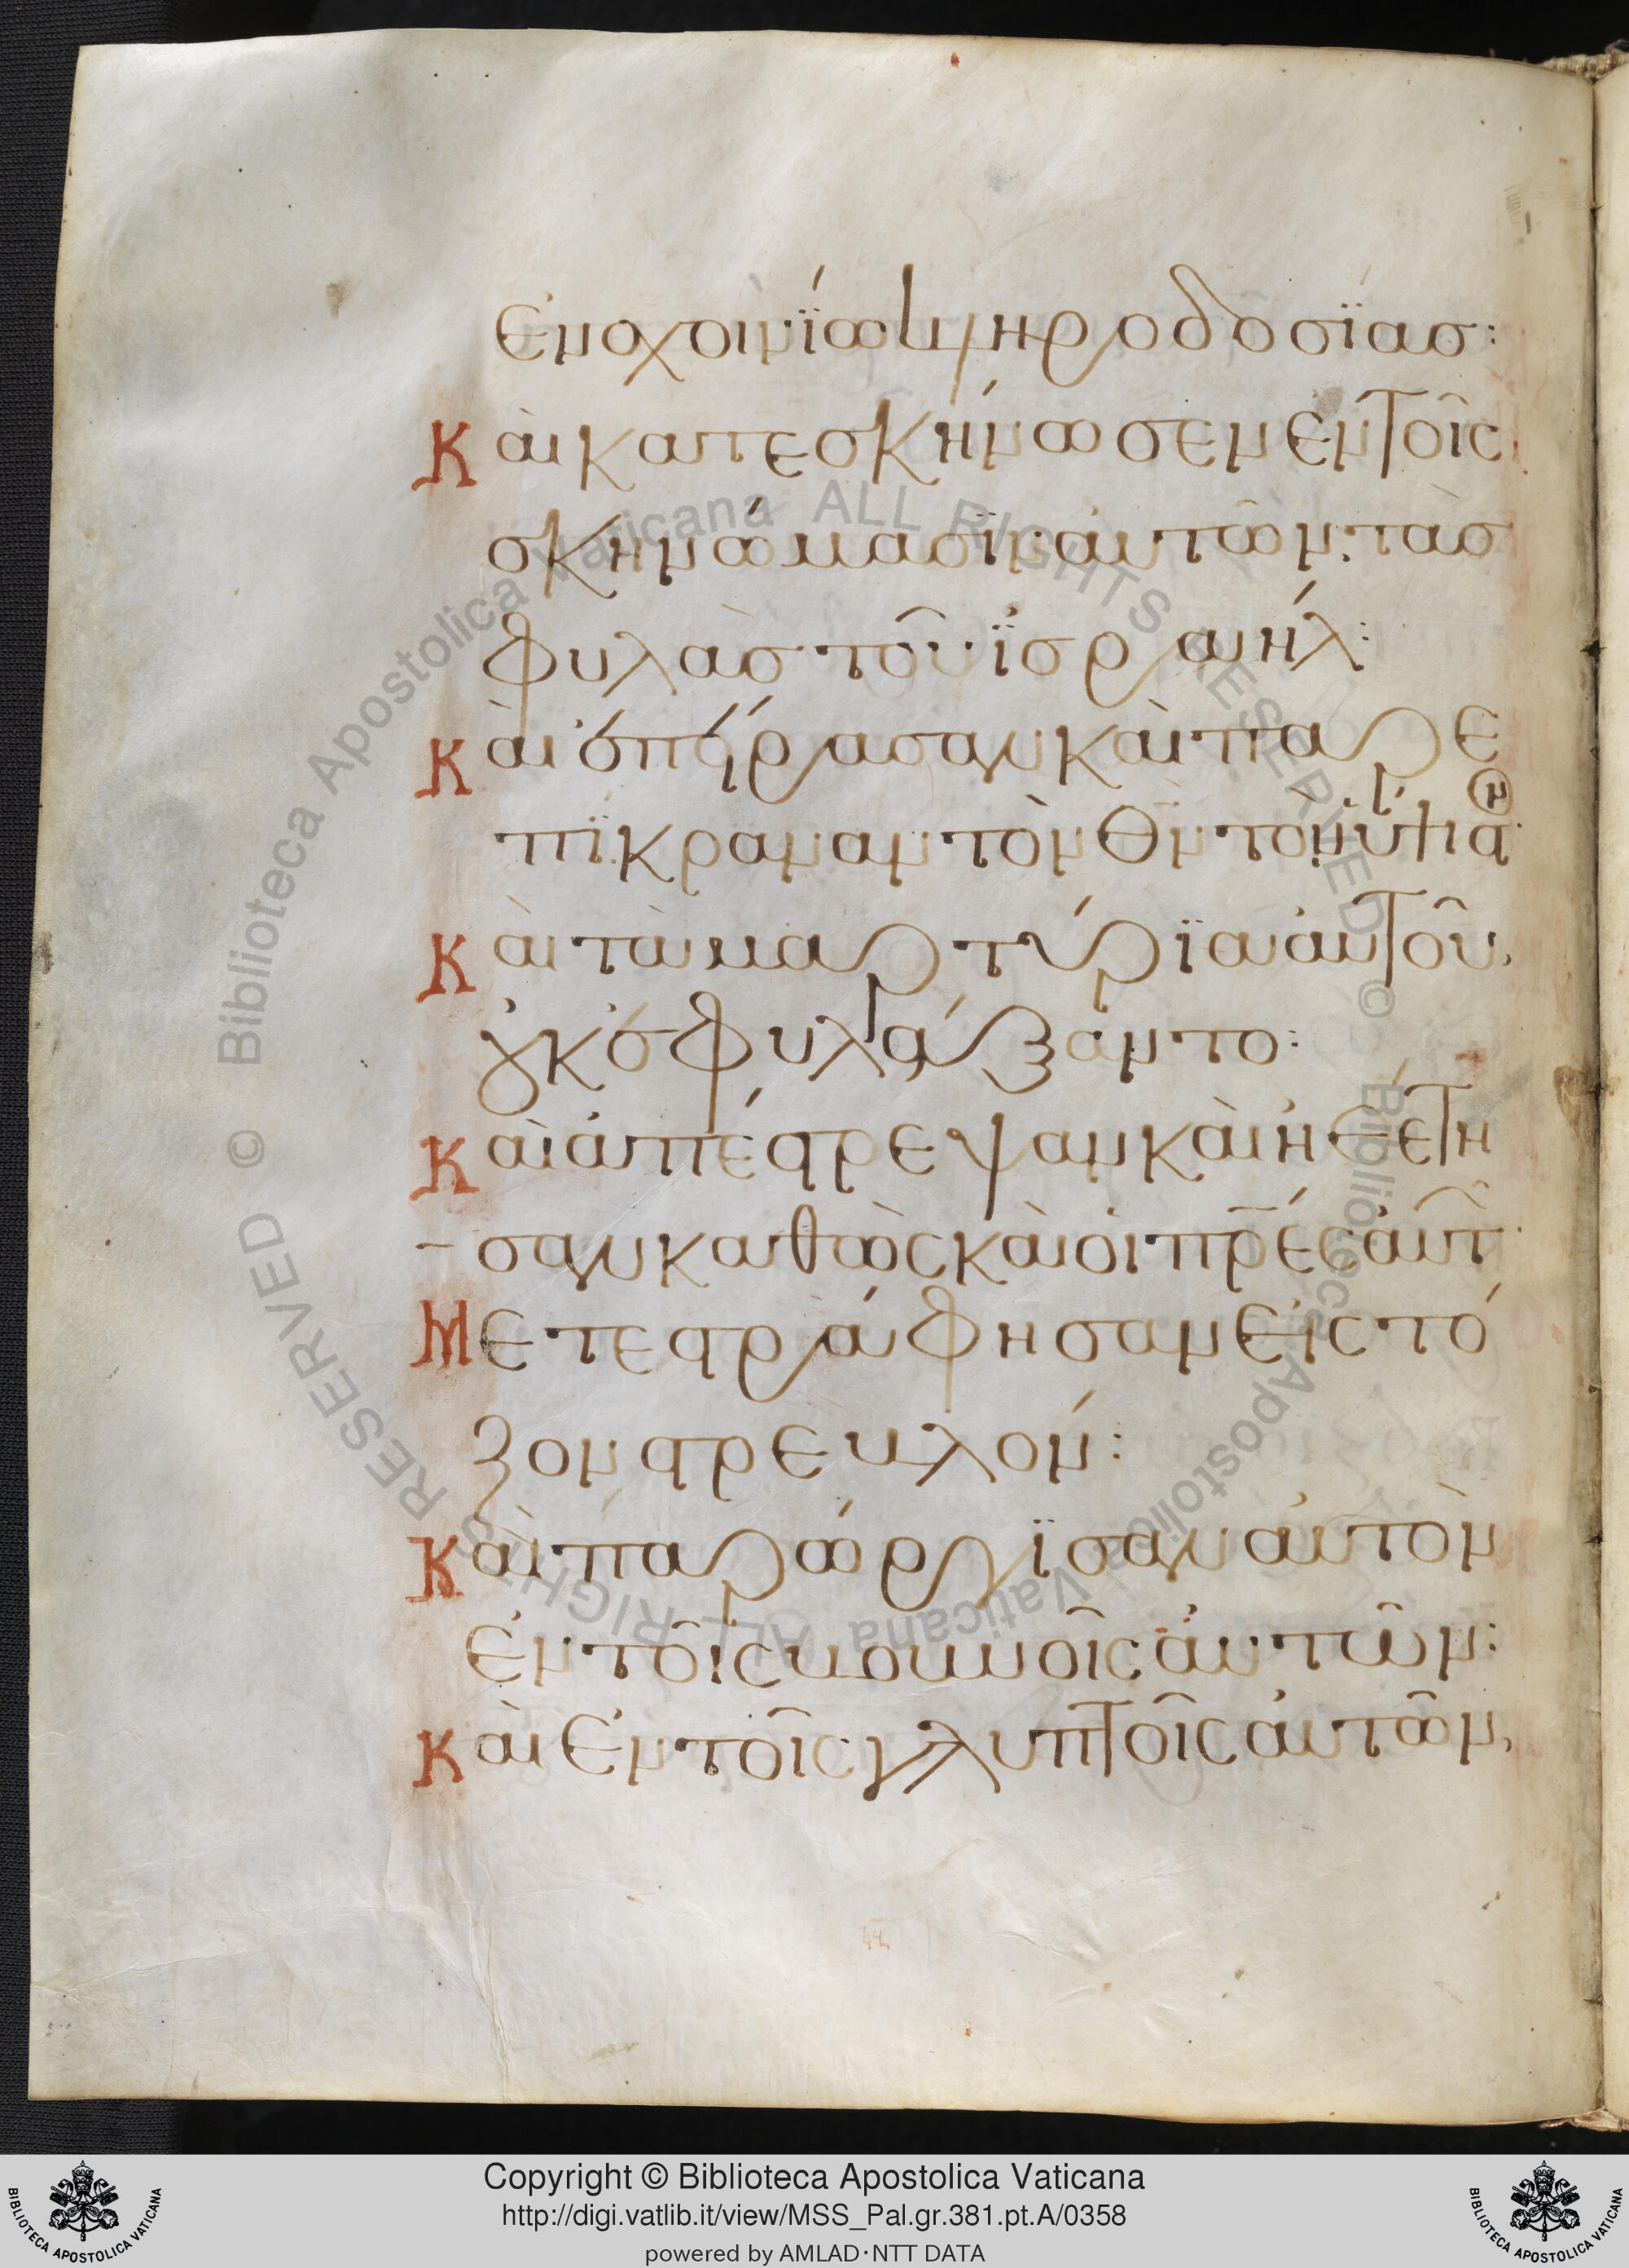 ἐν σχοινίῳ κληροδοσίας:
Καὶ κατεσκήνωσεν ἐν τοῖς
σκηνώμασιν αὐτῶν· τὰς
φυλὰς τοῦ ἰσραήλ:
Καὶ ἐπείρασαν καὶ παρε
πίκραναν τὸν θν τὸν ὕψιστ
Καὶ τὰ μαρτύρια αὐτοῦ,
οὐκ ἐφυλάξαντο:
Καὶ ἀπέστρεψαν καὶ ἠθέτη
σαν καθὼς καὶ οἱ πρες αὐτ
Μετεστράφησαν εἰς τό
ξον στρευλόν:
Καὶ παρώργισαν αὐτὸν
ἐν τοῖς βουνοῖς αὐτῶν:
Καὶ ἐν τοῖς γλυπτοῖς αὐτῶν,
Copyright © Biblioteca Apostolica Vaticana
http://digi.vatlib.it/view/MSS_Pal.gr.381.pt.A/0358
powered by AMLAD·NTT DATA
© Biblioteca Apostolica Vaticana ALL RIGHTS RESERVED
© Biblioteca Apostolica Vaticana ALL RIGHTS RESERVED
BIBLIOTECA APOSTOLICA VATICANA
BIBLIOTECA APOSTOLICA VATICANA